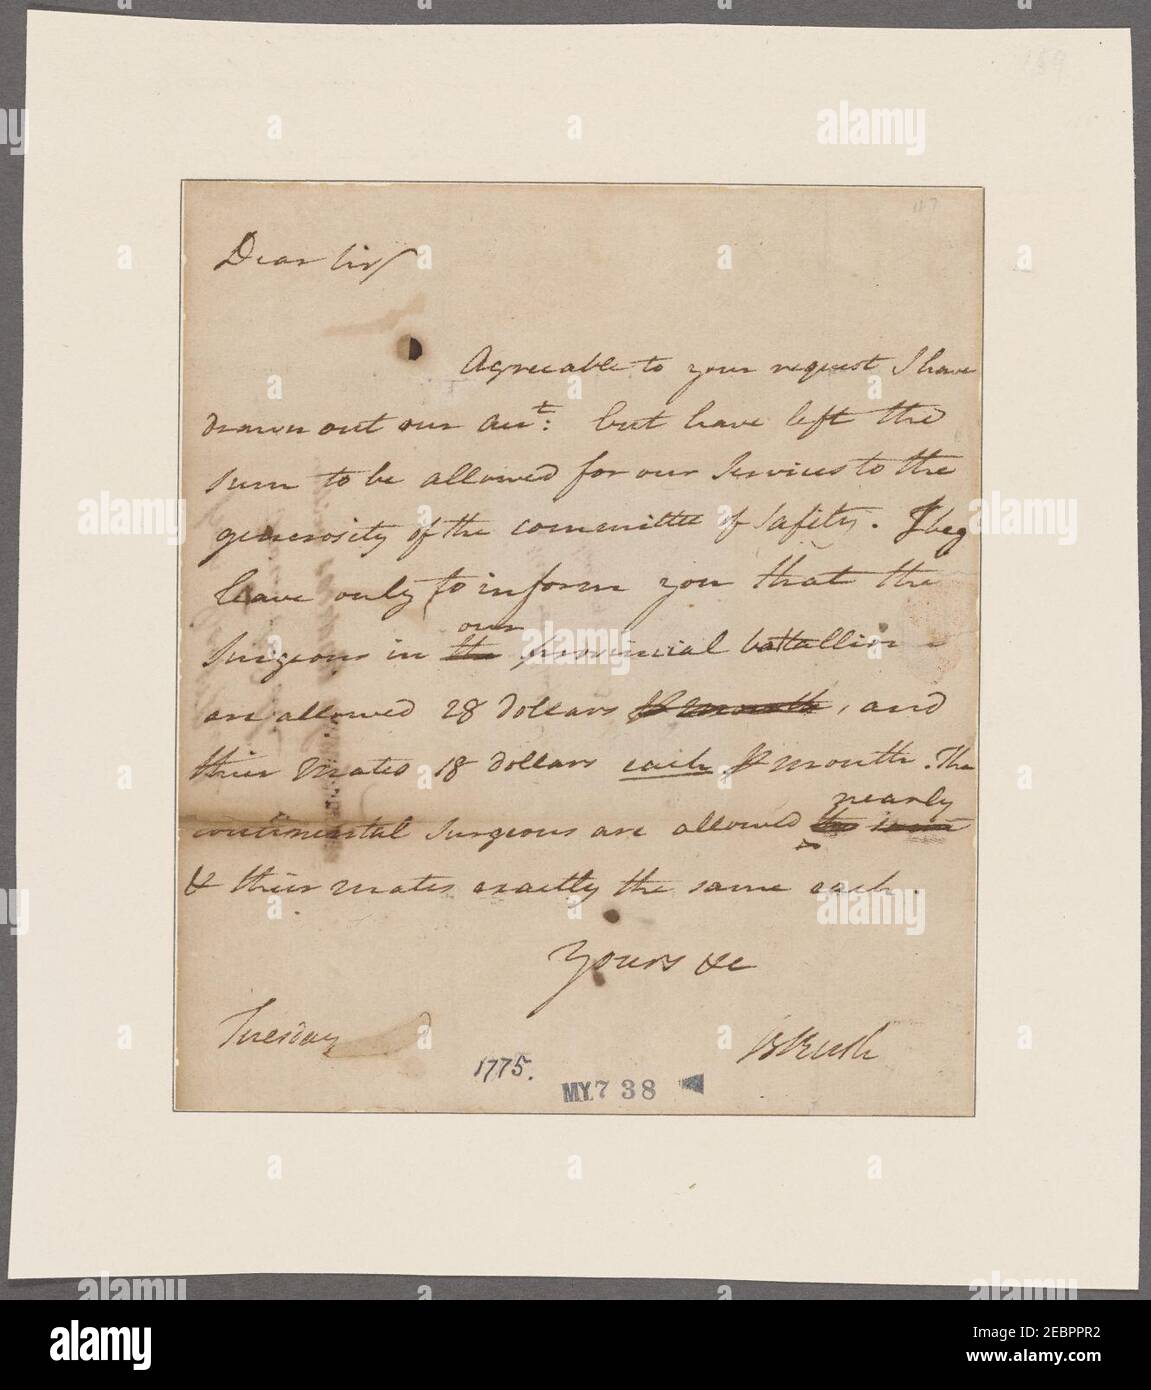 159
117
Dear Sir/
Agreeable to your request I have
drawn out our Acct: but have left the
sum to be allowed for our Services to the
generosity of the committee of safety. I beg
leave only to inform you that the
our
Surgeons in the provincial battallion
are allowed 28 dollars P month, and
thier mates 18 dollars each P month. The
nearly
continental Surgeons are allowed the same
& thier mates exactly the same each.
Yours &c
Tuesday
BRush
1775.
MY. 7 38
alamy
Image ID: 2EBPPR2
www.alamy.com